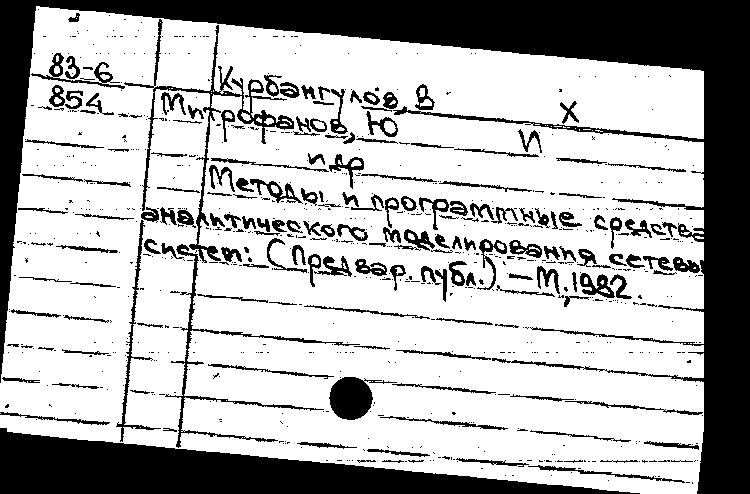 83-6
854
Курбангулов, В
Х
Митрофанов, Ю
И
и др
Методы и программные средства
аналитического моделирования сетевы
систем: (Предвар. публ.). — М., 1982.